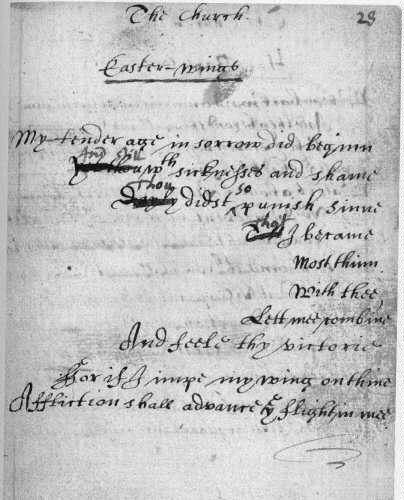 The Church.
28
Easter-wings
My tender age in sorrow did beginn
And still wth sicknesses and shame
Thou didst so punish sinne
That I became
Most thinn.
With thee
Lett mee combine
And feele thy victorie
For if I impe my wing on thine
Affliction shall advance ye flight in mee.